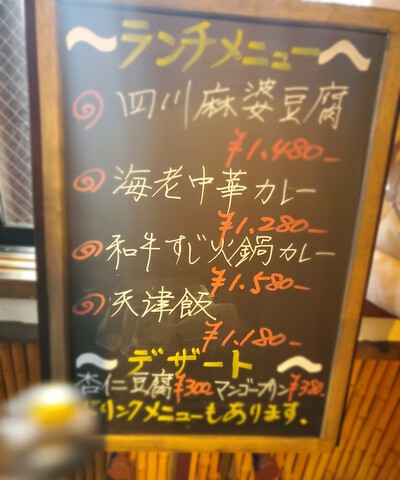 〜ランチメニュー〜
四川麻婆豆腐
¥1.480-
海老中華カレー
¥1.280-
和牛すじ火鍋カレー
¥1.580-
天津飯
¥1.180-
〜デザート〜
杏仁豆腐¥300 マンゴープリン¥380-
ドリンクメニューもあります.